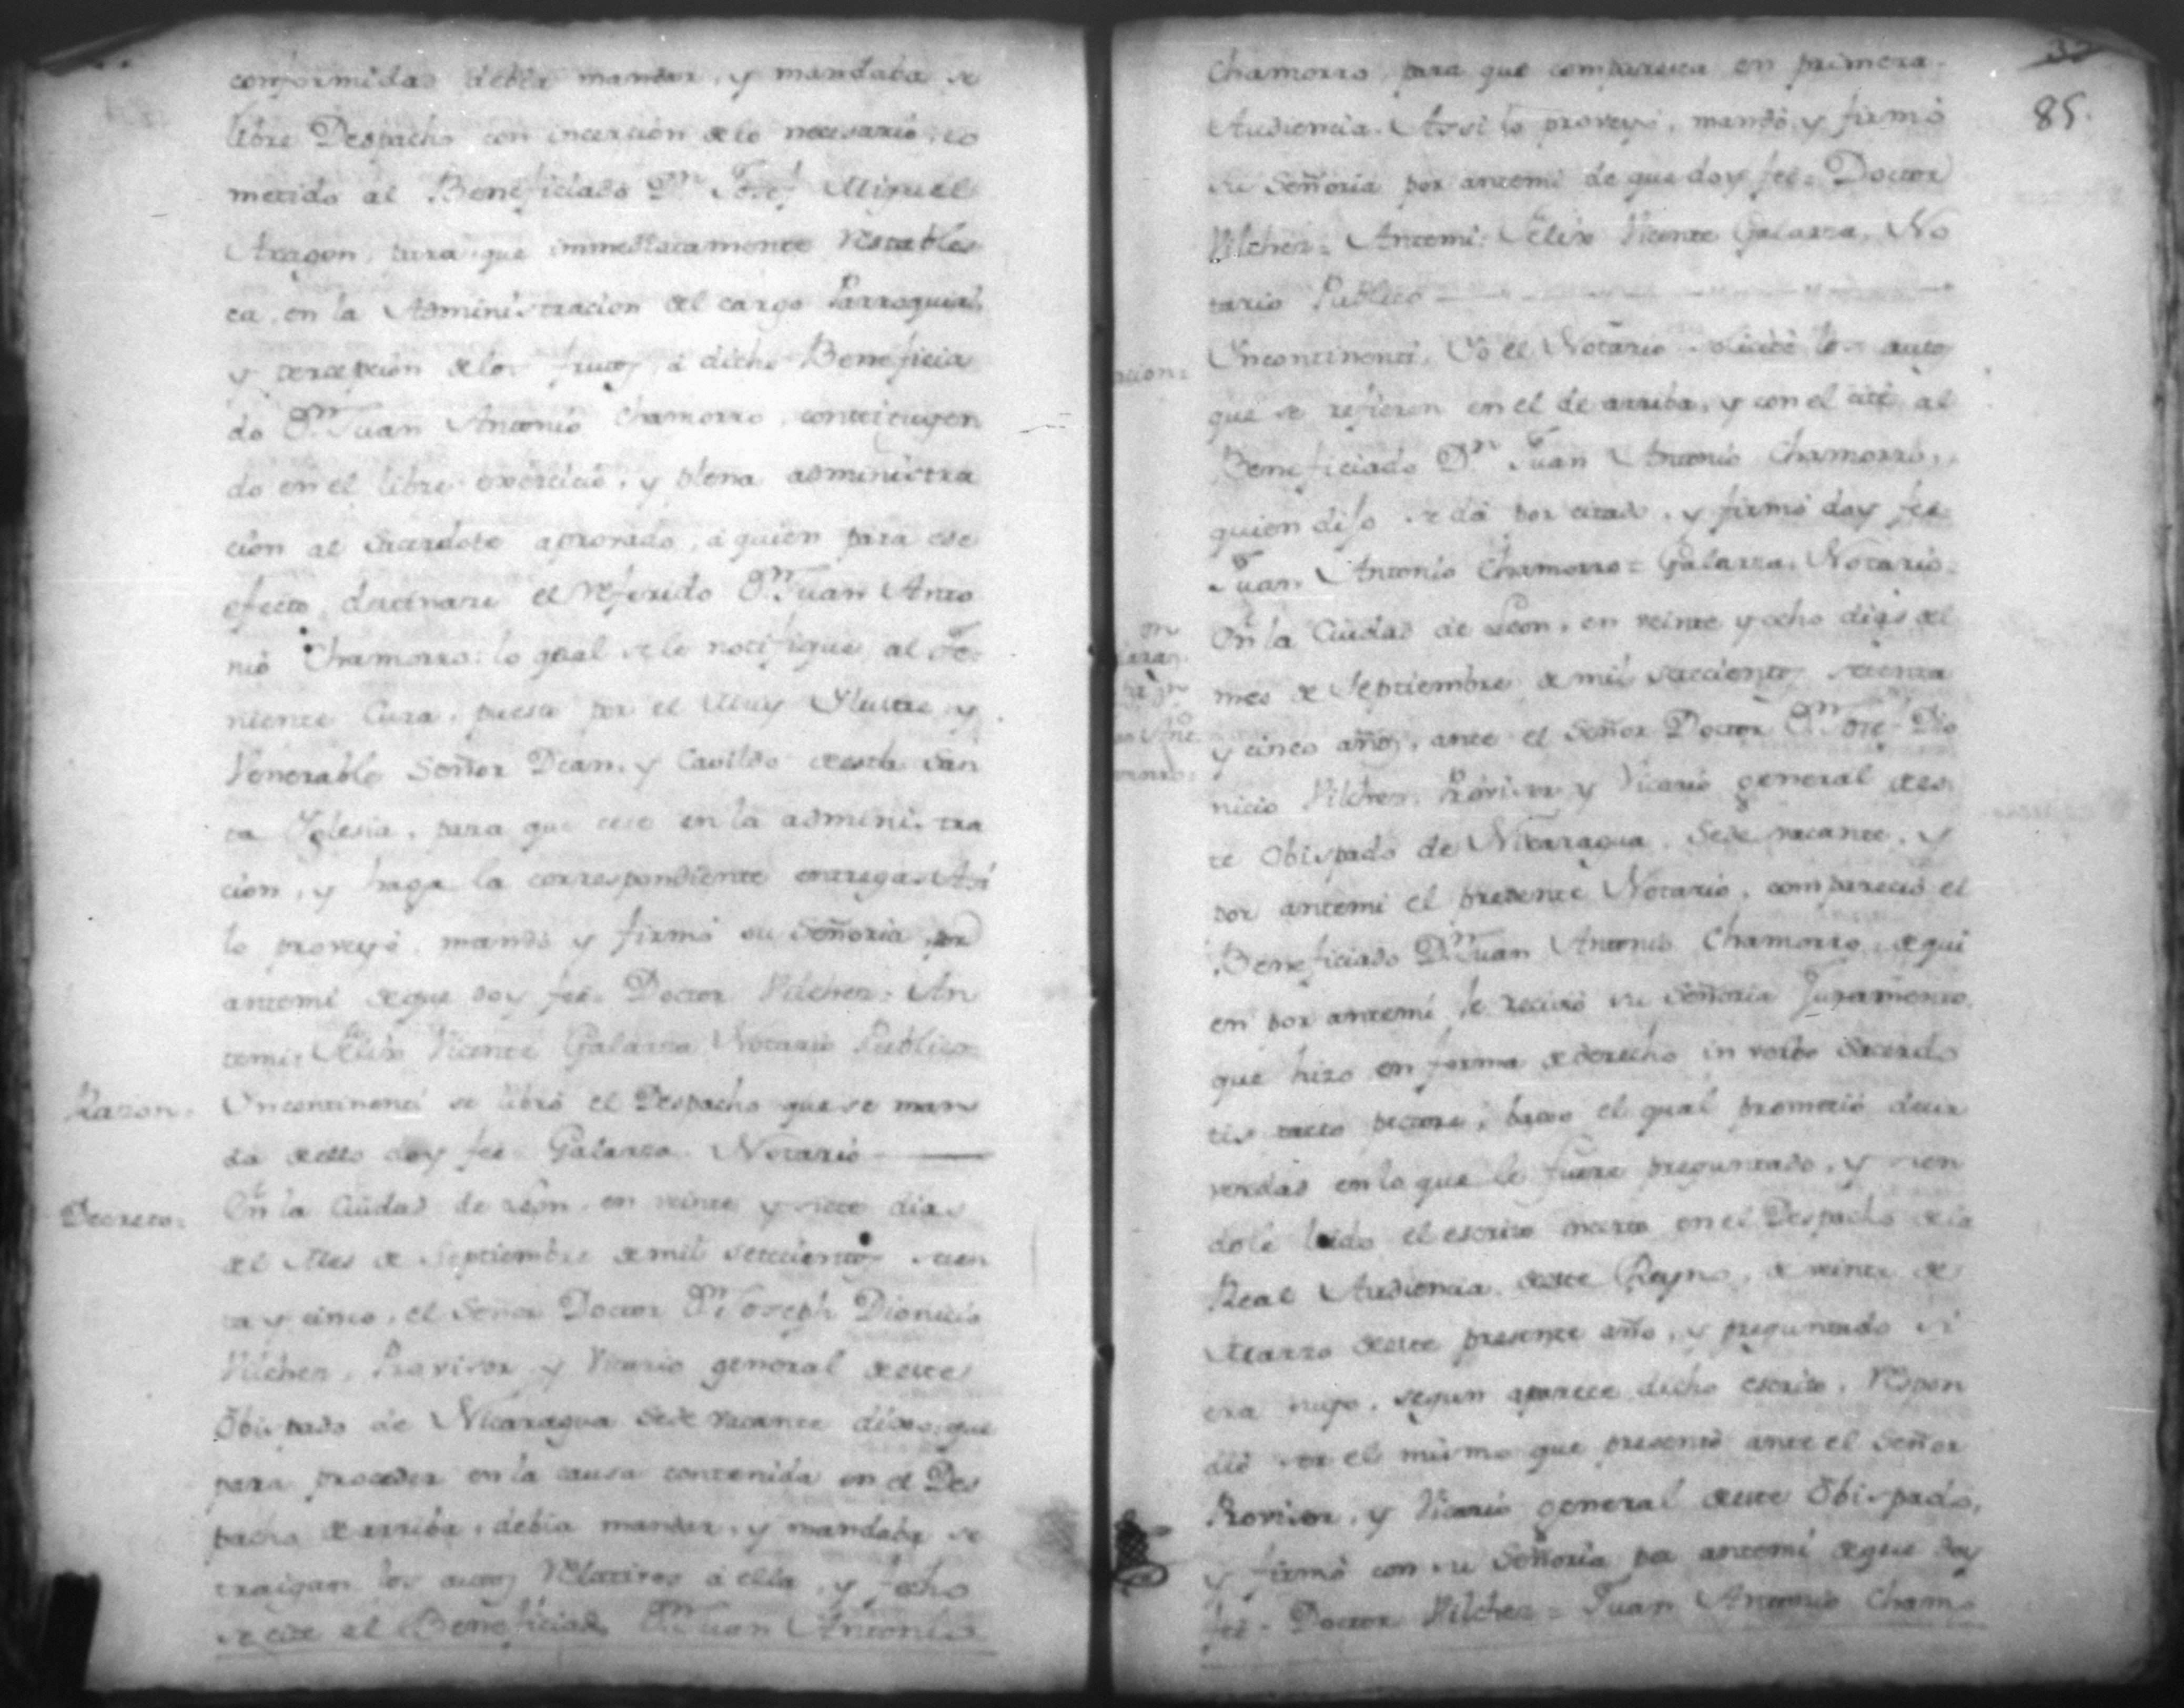 conformidad debia mandar, y mandaba se
libre Despacho con incercion de lo necesario, co
metido al Beneficiado Dn. Josef Miguel
Aragon, para que immediatamente restables
ca en la Administracion del cargo Parroquial,
y percepcion de los frutos á dicho Beneficia
do Dn. Juan Antonio Chamorro, constituyen
do en el libre exercicio, y plena administra
cion al Sacerdote aprovado, á quien para ese
efecto, destinare el referido Dn. Juan Anto
nio Chamorro: lo qual se le notifique al Te
niente Cura, puesto por el Muy Ilustre y
Venerable Señor Dean, y Cavildo de esta San
ta Yglesia, para que cese en la administra
cion, y haga la correspondiente entrega. Asi
lo proveyó, mandó y firmó su Señoria por
antemi de que doy feé. Doctor Vilchez. An
temi: Felix Vicente Galarza Notario Publico
Razon. Yncontinenti se libró el Despacho que se man
da de ello doy feé. Galarza. Notario
Decreto. En la Ciudad de Leon, en veinte y siete dias
del Mes de Septiembre de mil setecientos seten
ta y cinco, el Señor Doctor Dn. Joseph Dionicio
Vilchez, Provisor y Vicario general de este
Obispado de Nicaragua Sede vacante dixo: que
para proceder en la causa contenida en el Des
pacho de arriba, debia mandar, y mandaba se
traigan los autos relativos á ella, y fecho
se cite al Beneficiado Dn. Juan Antonio
85.
Chamorro, para que comparesca en primera
Audiencia. Assi lo proveyó, mandó, y firmó
su Señoria por antemi de que doy feé. Doctor
Vilchez = Antemi: Felix Vicente Galarza, No
tario Publico
Yncontinenti, Yo el Notario solicité los autos
que se refieren en el de arriba, y con el cité al
Beneficiado Dn. Juan Antonio Chamorro,
quien dijo se dá por citado, y firmó doy feé.
Juan Antonio Chamorro = Galarza, Notario.
En la Ciudad de Leon, en veinte y ocho dias del
mes de Septiembre de mil setecientos setenta
y cinco años, ante el Señor Doctor Dn. Jose Dio
nicio Vilchez, Provisor y Vicario general de es
te Obispado de Nicaragua, Sede vacante, y
por antemi el presente Notario, compareció el
Beneficiado Dn. Juan Antonio Chamorro, de qui
en por antemi le recivió su Señoria Juramento,
que hizo en forma de derecho in verbo Sacerdo
tis tacto pectore, bajo el qual prometió decir
verdad en lo que le fuere preguntado, y sien
dole leido el escrito incerto en el Despacho de la
Real Audiencia de este Reyno, de veinte de
Marzo de este presente año, y preguntado si
era suyo, segun aparece dicho escrito, respon
dió ser el mismo que presentó ante el Señor
Provisor, y Vicario general de este Obispado,
y firmó con su Señoria por antemi de que doy
feé. Doctor Vilchez = Juan Antonio Chamo